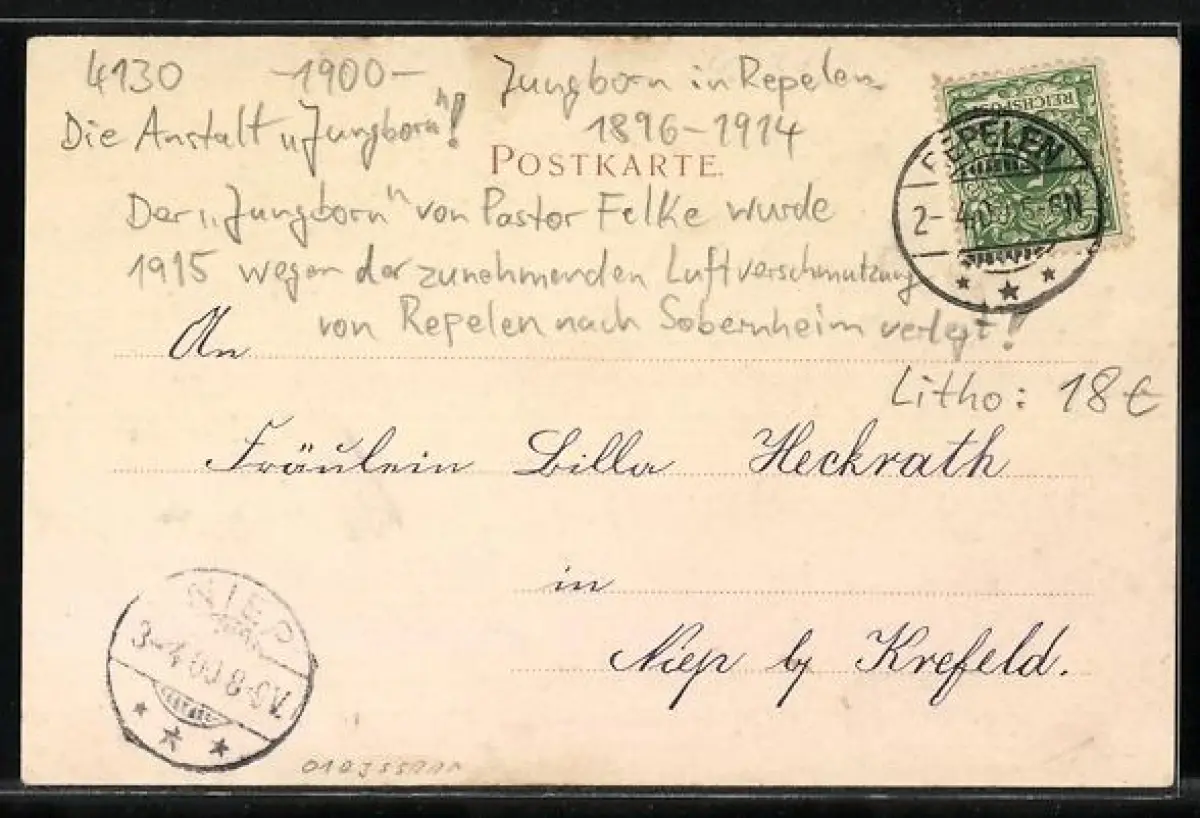 4130 -1900- Jungborn in Repelen
Die Anstalt „Jungborn"! 1896-1914
POSTKARTE.
REICHSPOST
REPELEN
2-4.00 5-6N
Der „Jungborn" von Pastor Felke wurde
1915 wegen der zunehmenden Luftverschmutzung
von Repelen nach Sobernheim verlegt!
An
Litho: 18 €
Fräulein Billa Heckrath
in
Niep by Krefeld.
NIEP
3-4.00 8-9V.